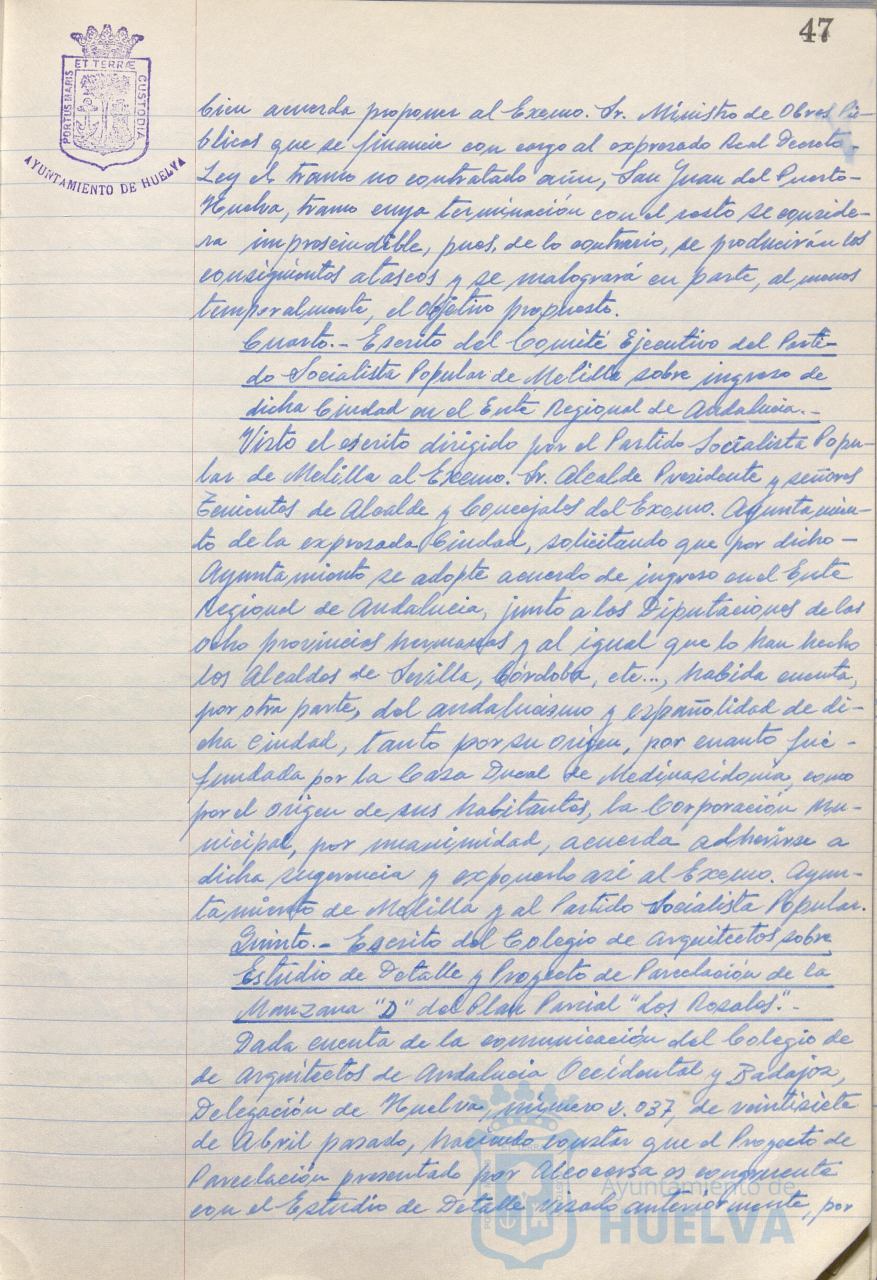 47
ET TERRÆ
PORTUS MARIS
CUSTODIA
AYUNTAMIENTO DE HUELVA
bien acuerda proponer al Excmo. Sr. Ministro de Obras Pú-
blicas que se financie con cargo al expresado Real Decreto-
Ley el tramo no contratado aún, San Juan del Puerto-
Huelva, tramo cuya terminación con el resto se conside-
ra imprescindible, pues, de lo contrario, se producirán los
consiguientes atascos y se malogrará en parte, al menos
temporalmente, el objetivo propuesto.
Cuarto.- Escrito del Comité Ejecutivo del Parti-
do Socialista Popular de Melilla sobre ingreso de
dicha Ciudad en el Ente Regional de Andalucia.-
Visto el escrito dirigido por el Partido Socialista Popu-
lar de Melilla al Excmo. Sr. Alcalde Presidente y señores
Tenientes de Alcalde y Concejales del Excmo. Ayuntamien-
to de la expresada Ciudad, solicitando que por dicho-
Ayuntamiento se adopte acuerdo de ingreso en el Ente
Regional de Andalucia, junto a las Diputaciones de las
ocho provincias hermanas y al igual que lo han hecho
los Alcaldes de Sevilla, Córdoba, etc..., habida cuenta,
por otra parte, del andalucismo y españolidad de di-
cha Ciudad, tanto por su origen, por cuanto fué-
fundada por la Casa Ducal de Medinasidonia, como
por el origen de sus habitantes, la Corporación Mu-
nicipal, por unanimidad, acuerda adherirse a
dicha sugerencia y exponerlo así al Excmo. Ayun-
tamiento de Melilla y al Partido Socialista Popular.
Quinto.- Escrito del Colegio de Arquitectos sobre
Estudio de Detalle y Proyecto de Parcelación de la
Manzana "D" del Plan Parcial "Los Rosales".-
Dada cuenta de la comunicación del Colegio de
de Arquitectos de Andalucia Occidental y Badajoz,
Delegación de Huelva, número 2.037, de veintisiete
de Abril pasado, haciendo constar que el Proyecto de
Parcelación presentado por Alcocersa es congruente
con el Estudio de Detalle visado anteriormente, por
Ayuntamiento de
HUELVA